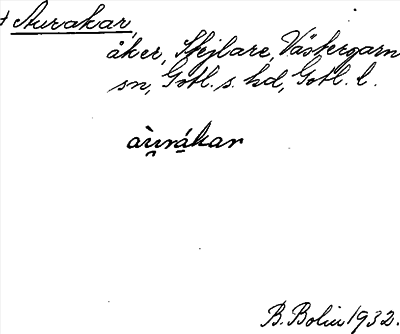 † Aurakar,
åker, Stejlare, Västergarn
sn, Gotl. s. hd, Gotl. l.
àu̯rá̱kar
B. Bolin 1932.